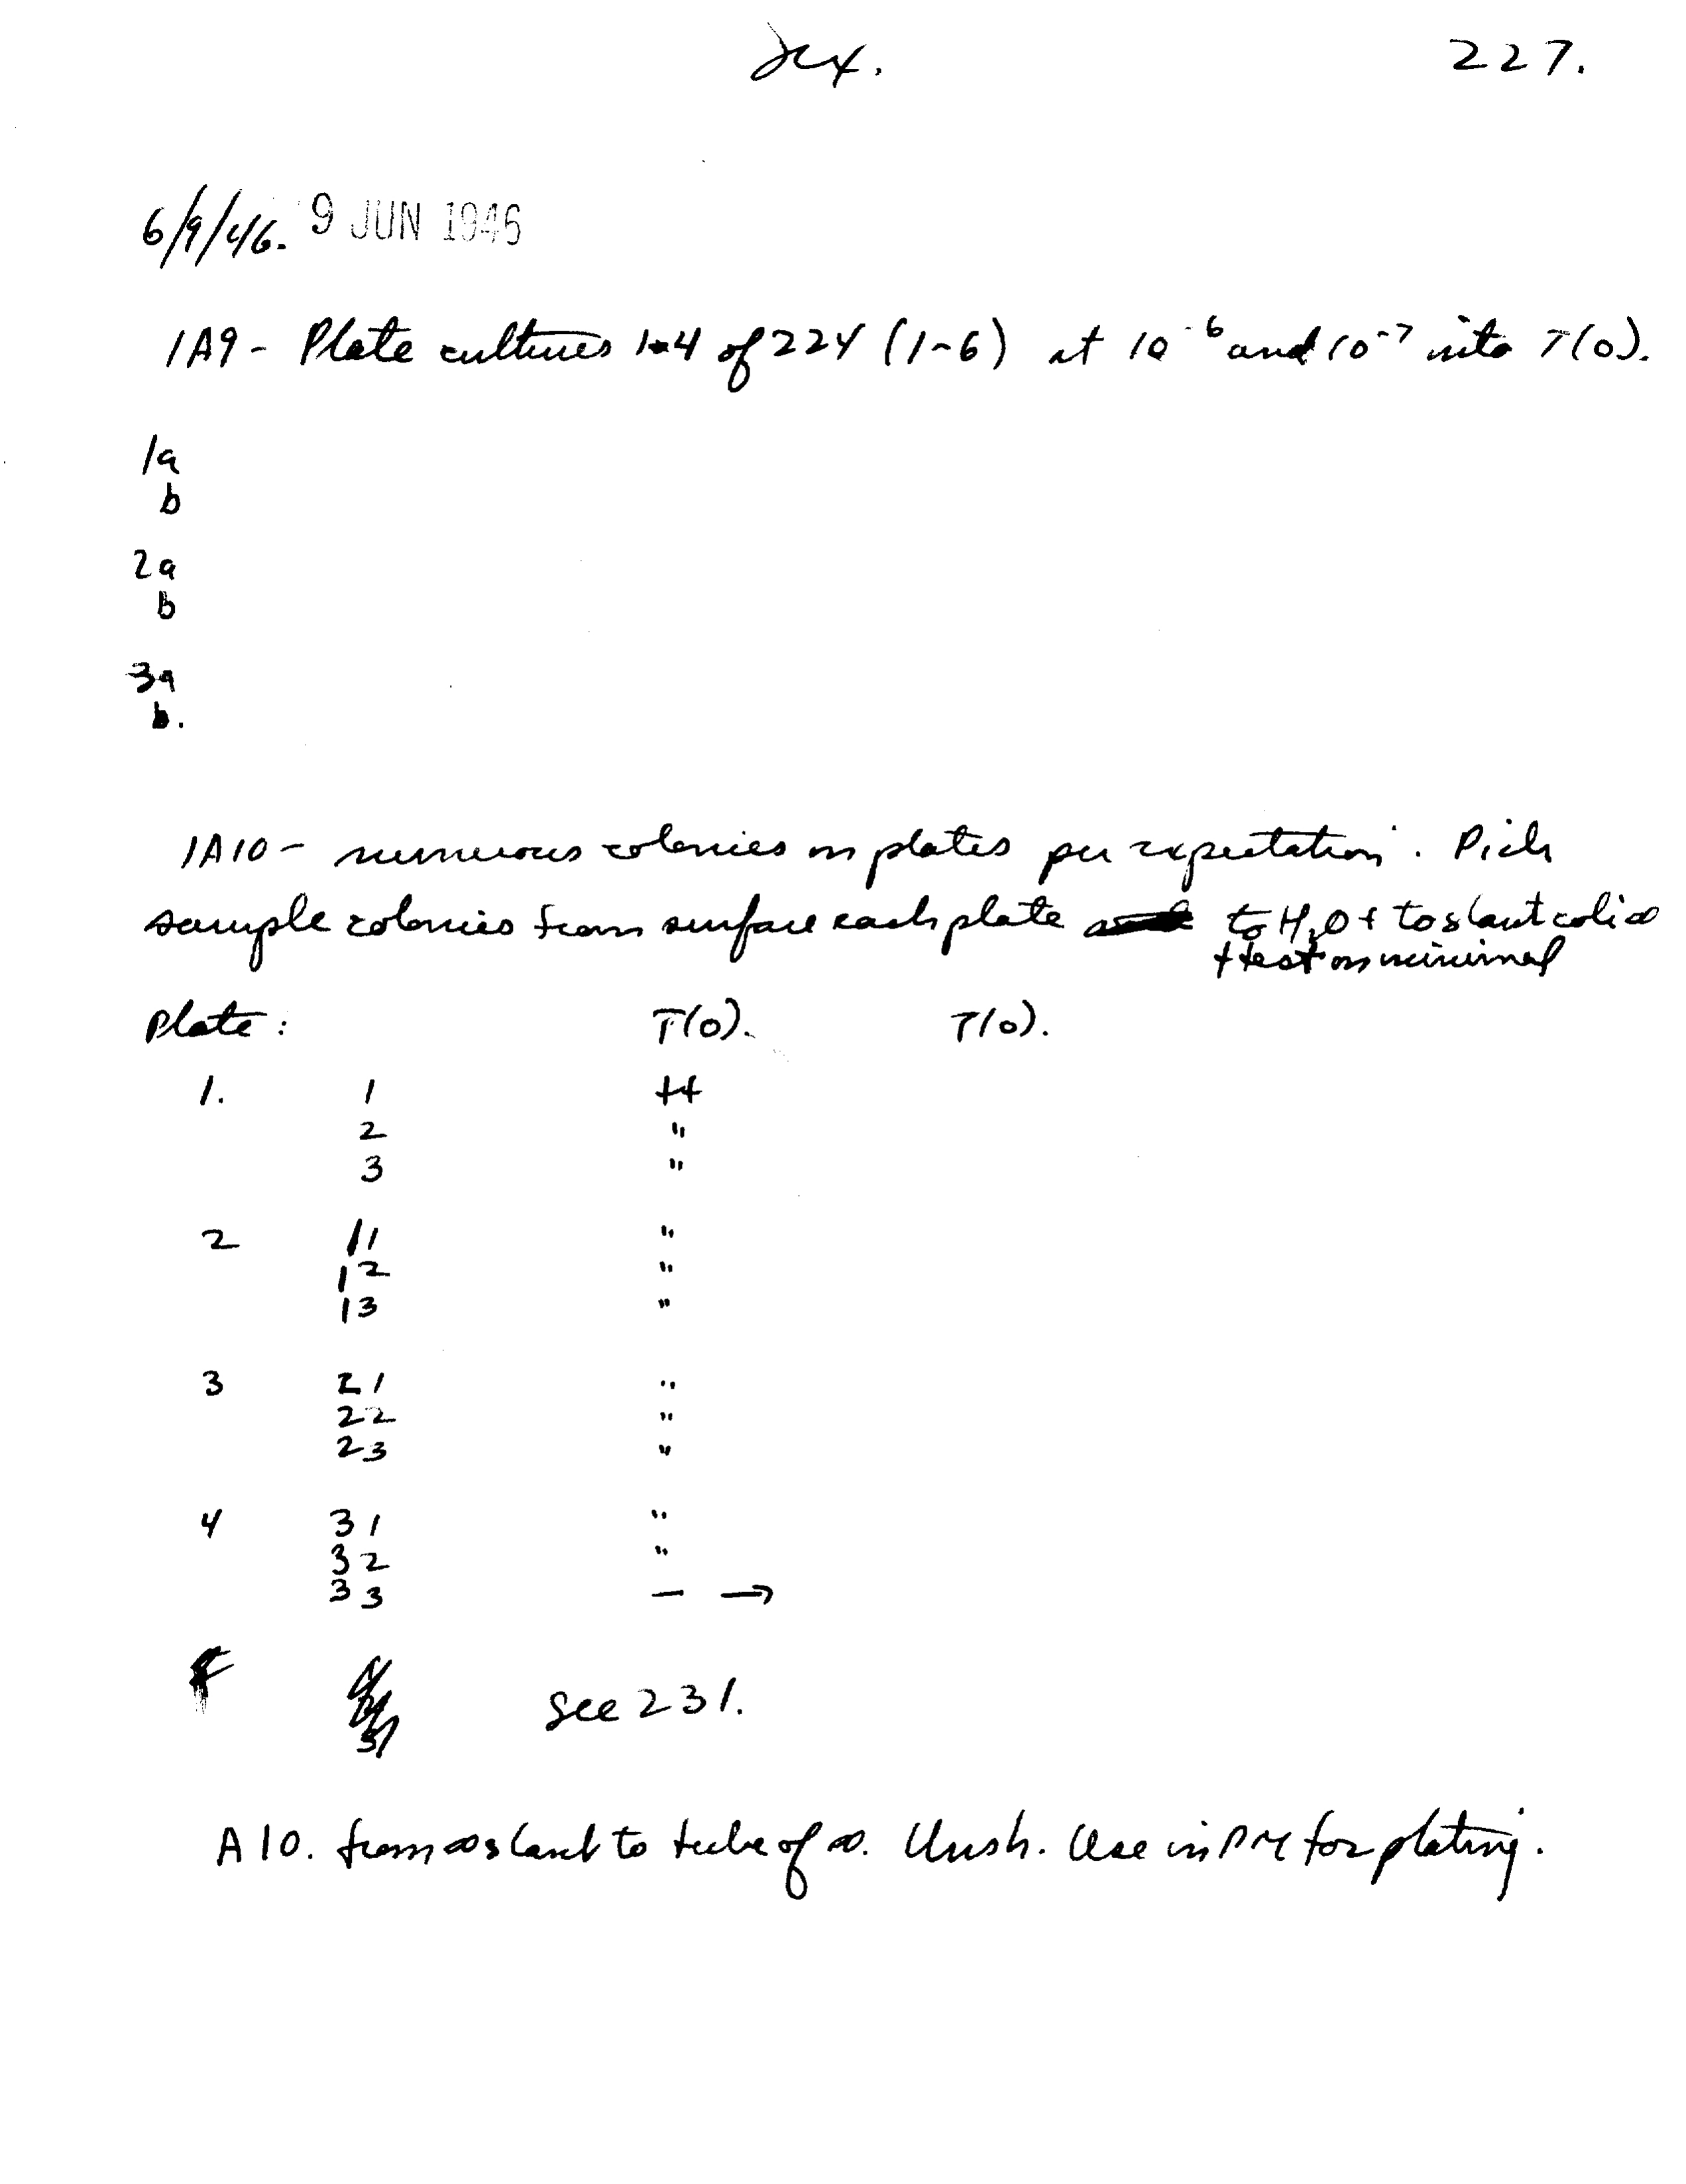 227.
6/9/46. 9 JUN 1946
1A9 - Plate cultures 1-4 of 224 (1-6) at 10⁻⁶ and 10⁻⁷ into T(0).
1a
b
2a
b
3a
b.
1A10 - numerous colonies on plates per expectation. Pick
sample colonies from surface each plate to H₂O + to slant coli ∞
+ test on minimal
Plate: T(0). T(0).
1. 1 ++
2 "
3 "
2 11 "
12 "
13 "
3 21 "
22 "
23 "
4 31 "
32 "
33 — →
See 231.
A10. from ∞ slant to tube of ∞. Use in PM for plating.